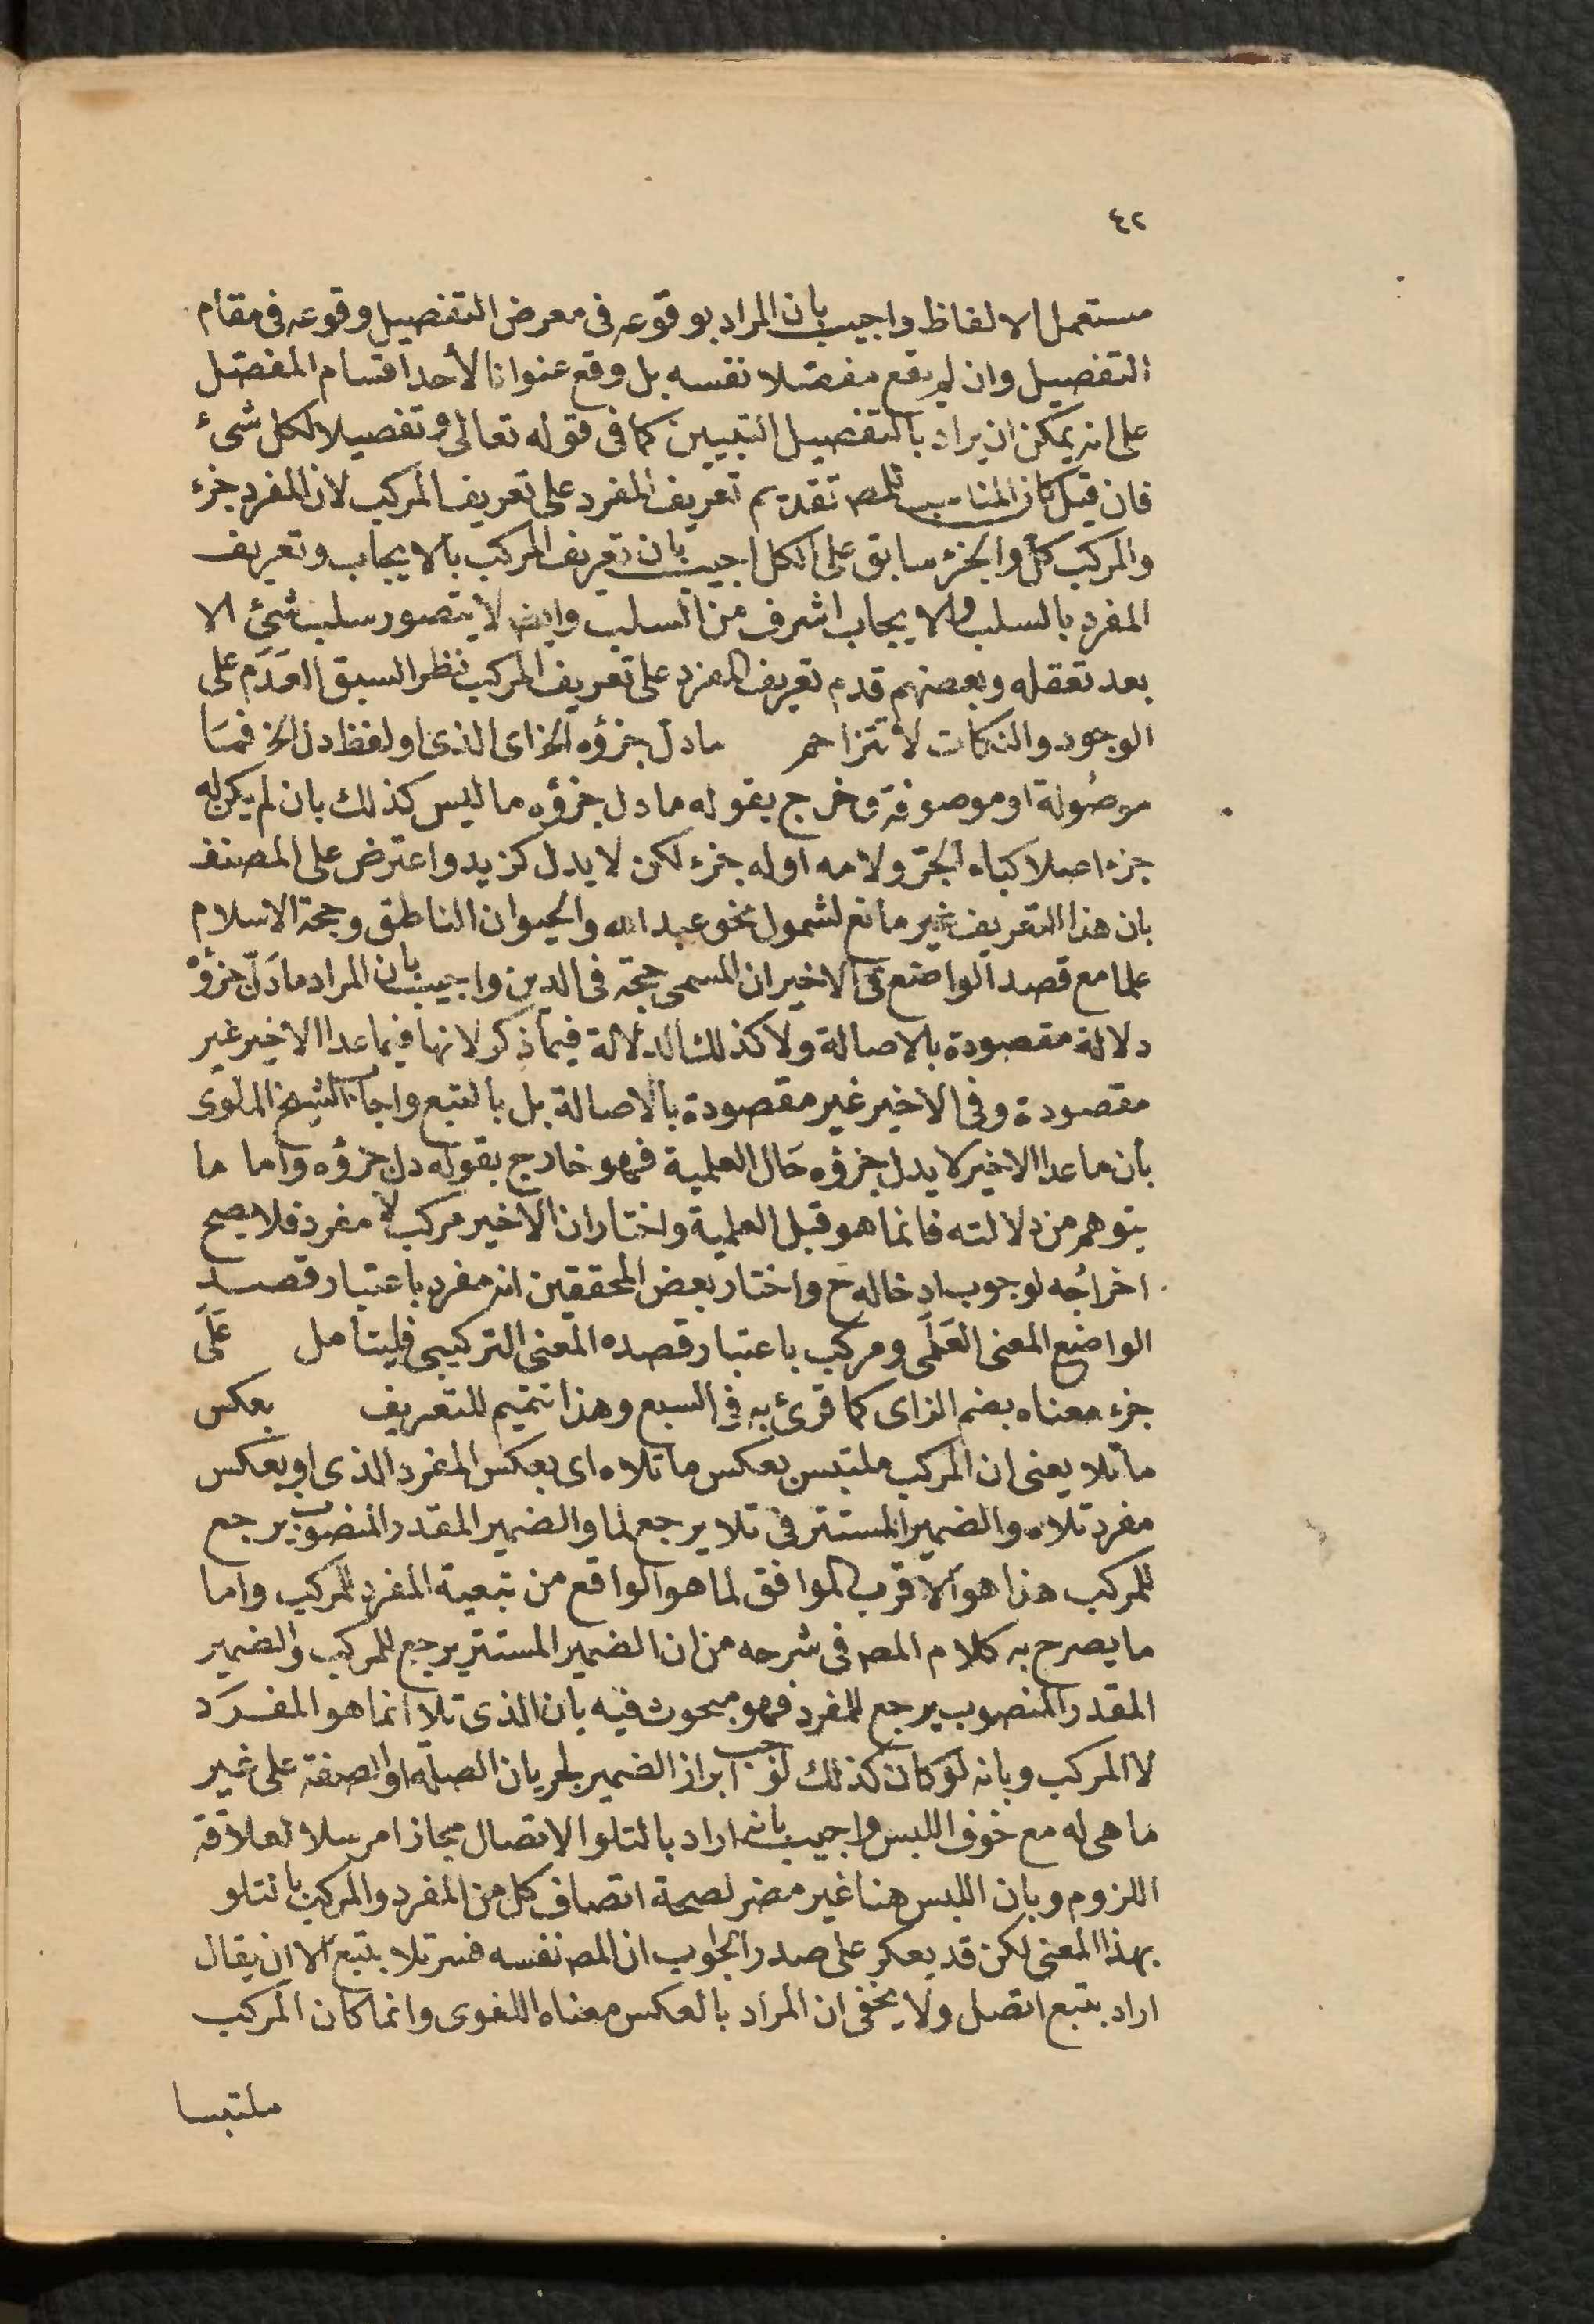 ٤٢
مستعمل الالفاظ واجيب بان المراد بوقوعه فى معرض التفصيل وقوعه فى مقام
التفصيل وان لم يقع مفصّلا نفسه بل وقع عنوانا لأحد اقسام المفصّل
على انه يمكن ان يراد بالتفصيل التبيين كما فى قوله تعالى وتفصيلا لكل شىء
فان قيل كان المناسب للمص تقديم تعريف المفرد على تعريف المركب لان المفرد جزء
والمركب كل والجزء سابق على الكل اجيب بان تعريف المركب بالايجاب وتعريف
المفرد بالسلب والايجاب اشرف من السلب وايض لا يتصور سلب شئ الا
بعد تعقله وبعضهم قدم تعريف المفرد على تعريف المركب نظر السبق العَدَم على
الوجود والنكات لا تتزاحم ما دل جزؤه الخ اى الذى او لفظ دل الخ فمَا
موصُولة او موصوفة وخرج بقوله ما دل جزؤه ما ليس كذلك بان لم يكن له
جزء اصلا كباء الجرّ ولامه او له جزء لكن لا يدل كزيد واعترض على المصنف
بان هذا التعريف غير مانع لشمول نحو عبد الله والحيوان الناطق وحجة الاسلام
علما مع قصد الواضع فى الاخير ان المسمى حجة فى الدين واجيب بان المراد ما دَلّ جزؤه
دلالة مقصودة بالاصالة ولا كذلك الدلالة فيما ذكر لانها فيما عدا الاخير غير
مقصودة وفى الاخير غير مقصودة بالاصالة بل بالتبع واجاب الشيخ الملّوى
بأن ما عدا الاخير لا يدل جزؤه حَال العلمية فهو خارج بقوله دل جزؤه واما ما
يتوهم من دلالته فانما هو قبل العلمية واختار ان الاخير مركب لا مفرد فلا يصح
اخراجُه لوجوب ادخاله ح واختار بعض المحققين انه مفرد باعتبار قصد
الواضع المعنى العَلَمى ومركب باعتبار قصده المعنى التركيبى فليتأمل عَلَى
جزء معناه بضم الزاى كما قرئ به فى السبع وهذا تتميم للتعريف بعكس
ما تلا يعنى ان المركب ملتبس بعكس ما تلاه اى بعكس المفرد الذى او بعكس
مفرد تلاه والضمير المستتر فى تلا يرجع لما والضمير المقدر المنصوب يرجع
للمركب هذا هو الاقرب الموافق لما هو الواقع من تبعية المفرد للمركب واما
ما يصرح به كلام المص فى شرحه من ان الضمير المستتر يرجع للمركب والضمير
المقدر المنصوب يرجع للمفرد فهو مبحوث فيه بان الذى تلا انما هو المفرَد
لا المركب وبانه لو كان كذلك لوجب ابراز الضمير لجريان الصلة او الصفة على غير
ما هى له مع خوف اللبس واجيب بانه اراد بالتلو الاتصال مجازا مرسلا لعلاقة
اللزوم وبان اللبس هنا غير مضر لصحة اتصاف كل من المفرد والمركب بالتلو
بهذا المعنى لكن قد يعكر على صدر الجواب ان المص نفسه فسر تلا بتبع الا ان يقال
اراد بتبع اتصل ولا يخفى ان المراد بالعكس معناه اللغوى وانما كان المركب
ملتبسا